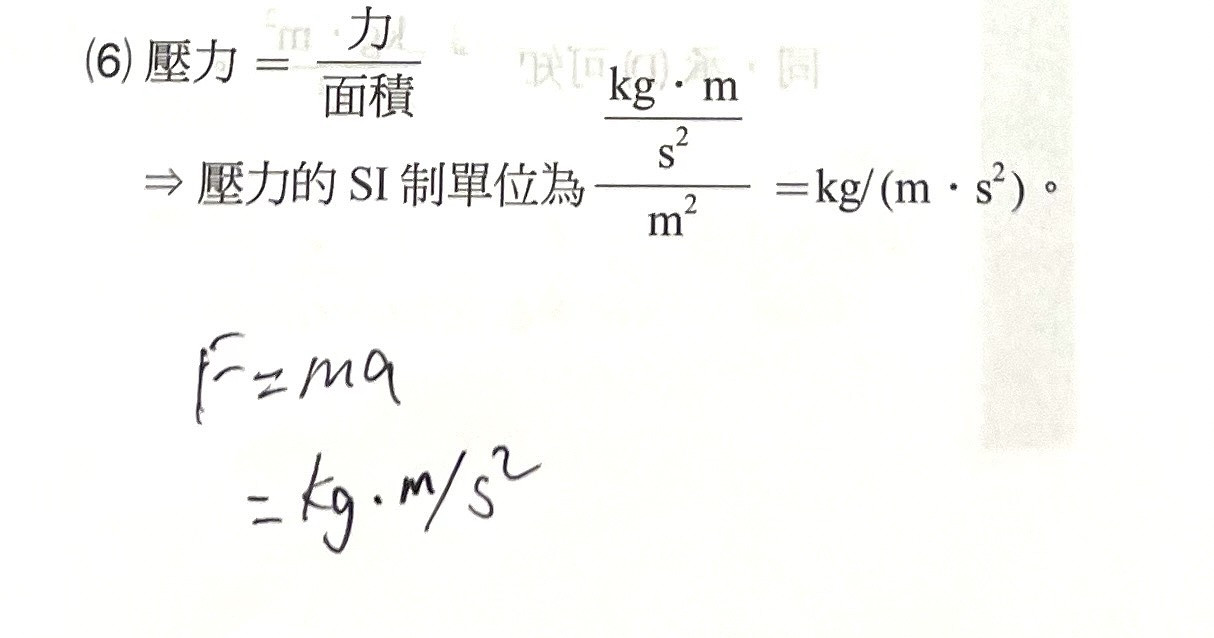 (6) 壓力 = 力/面積
⇒ 壓力的 SI 制單位為 (kg · m/s²)/m² = kg/(m · s²)。
F = ma
= kg · m/s²